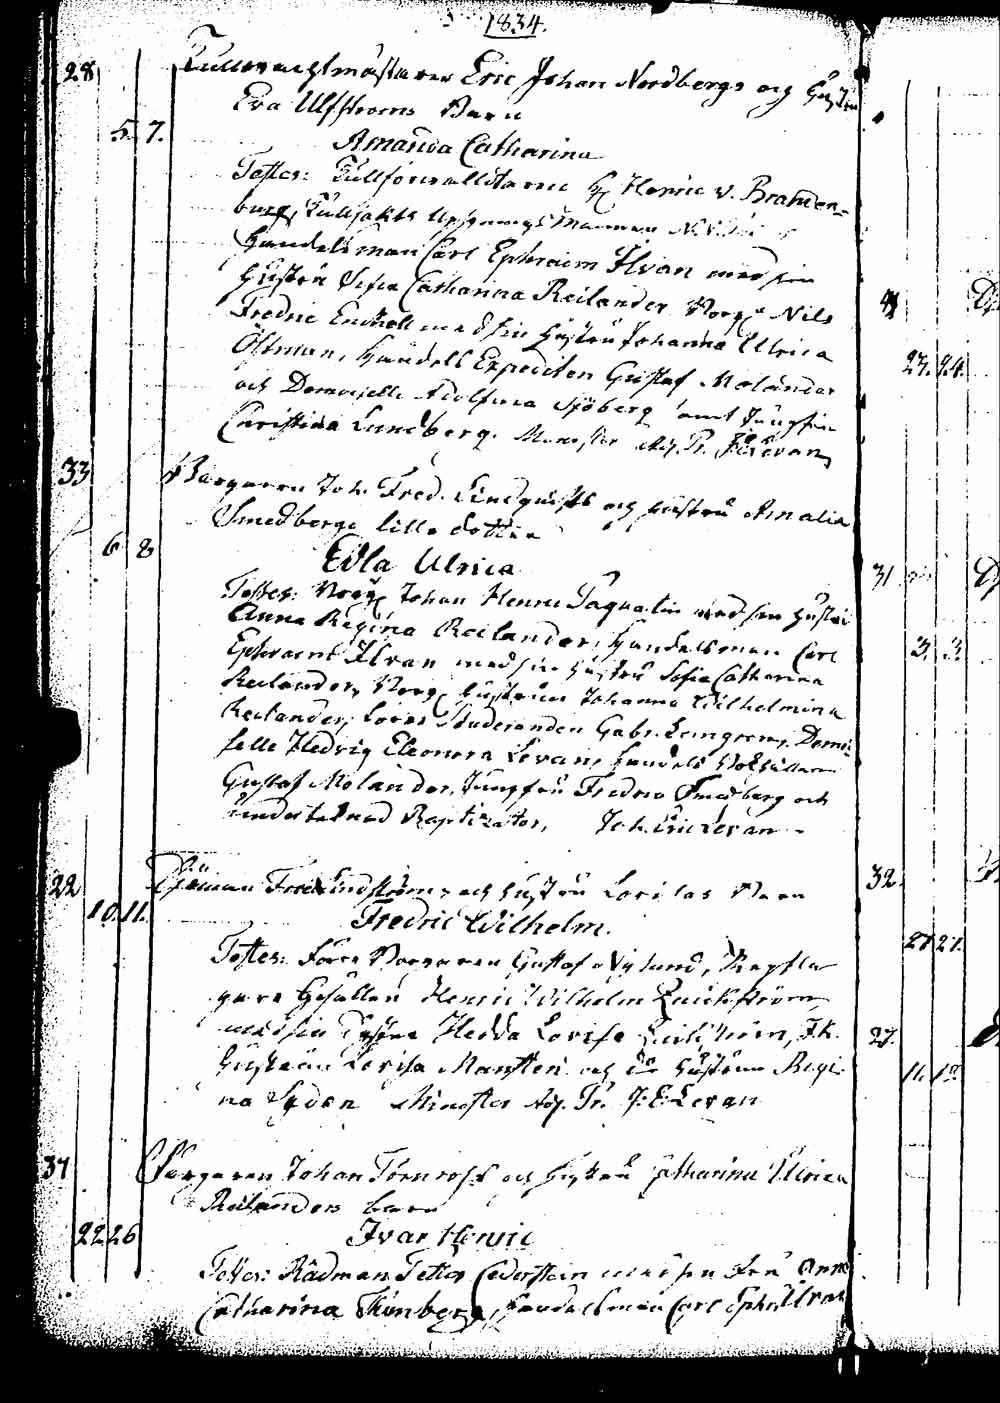 1834.
28 Tullvachtmästaren Eric Johan Nordbergs och Hustru
Eva Ulfstroms Barn
5. 7.
Amanda Catharina
Testes: Tullförvalltaren Hr Henric v. Branden=
burg, Tulljakts Uppsynings Mannen
Handelsman Carl Ephraim Ilvan med sin
Hustru Sofia Catharina Reilander, Borg: Nils
Fredric Enckell med sin Hustru Johanna Ulrica
Östman, Handels Expediten Gustaf Molander
och Demoiselle Adolfina Sjöberg samt Jungfru
Christina Lundberg. Minister Adj. Pr. J. E. Levan
33 Borgaren Joh. Fred. Lindqvists och Hustru Amalia
Smedbergs lilla dotter
6 8
Edla Ulrica
Testes: Borg: Johan Henric Paqvalin med sin Hustru
Anna Regina Reilander, Handelsman Carl
Ephraim Ilvan med sin Hustru Sofia Catharina
Reilander, Borg: Hustrun Johanna Wilhelmina
Reilander, Studeranden Gabr. Lengren, Demoi-
selle Hedvig Eleonora Levan, Handels Bokhållaren
Gustaf Molander, Jungfru Fredrica Smedberg och
undertecknad Baptizator, Joh. Eric Levan
22 Fred. Lindströms och Hustru Lovisas Barn
10. 11.
Fredric Wilhelm.
Testes: Borgaren Gustaf Nylund, Repsla-
gare Gesällen Henric Wilhelm Quickström
med sin Hustru Hedda Lovisa Quickström, F.K.
Hustrun Lovisa Mansten och do Hustrun Regi-
na Syden Minister Adj. Pr. J. E. Levan
37 Borgaren Johan Törnroos och Hustru Catharina Ulrica
Reilanders barn
22 26
Ivar Henric
Testes: Rådman Petter Cederstein med sin Fru Anna
Catharina Thunberg, Handelsman Carl Ephr. Ilvan
23. 24.
31
3 3.
32.
27 27.
27.
11. 12.